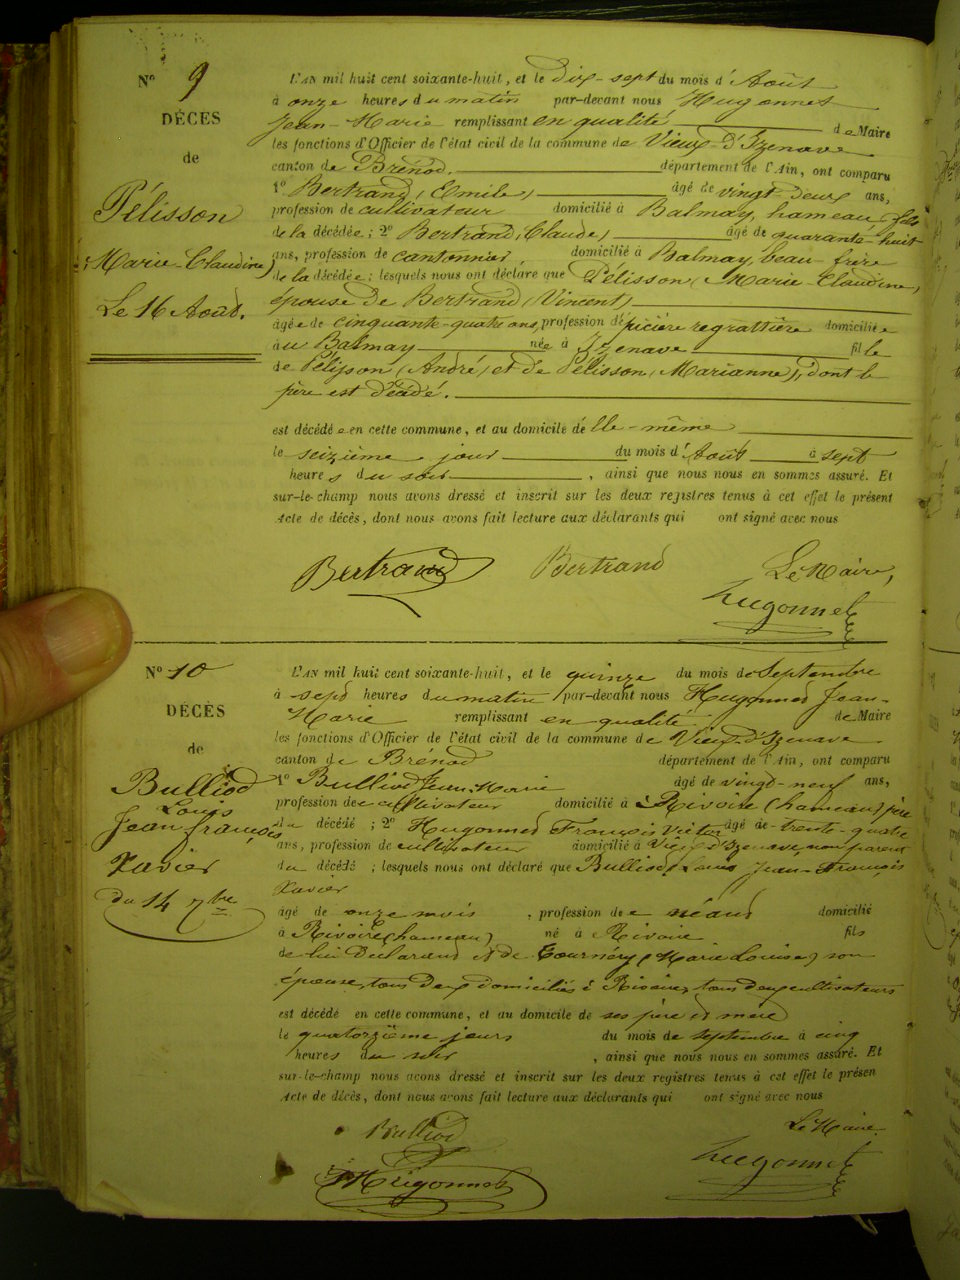 N° 9
DÉCES
de
Pélisson
Marie-Claudine
Le 16 Août.
L'AN mil huit cent soixante-huit, et le dix-sept du mois d'Août
à onze heures du matin par-devant nous Hugonnet
Jean-Marie remplissant en qualité de Maire
les fonctions d'Officier de l'état civil de la commune de Vieux-d'Izenave
canton de Brénod, département de l'Ain, ont comparu
1° Bertrand (Emile) âgé de vingt-deux ans,
profession de cultivateur domicilié à Balmay, hameau, fils
de la décédée; 2° Bertrand (Claude) âgé de quarante-huit
ans, profession de cantonnier, domicilié à Balmay, beau-frère
de la décédée; lesquels nous ont déclaré que Pélisson (Marie-Claudine)
épouse de Bertrand (Vincent)
âgée de cinquante-quatre ans, profession d'épicière regrattière domiciliée
au Balmay née à Izenave fille
de Pélisson (André) et de Pélisson (Marianne), dont le
père est décédé.
est décédée en cette commune, et au domicile d'elle-même
le seizième jour du mois d'Août à sept
heures du soir, ainsi que nous nous en sommes assuré. Et
sur-le-champ nous avons dressé et inscrit sur les deux registres tenus à cet effet le présent
Acte de décès, dont nous avons fait lecture aux déclarants qui ont signé avec nous
Bertrand Bertrand Le Maire,
Hugonnet
N° 10
DÉCÈS
de
Bulliod
Louis
Jean françois
Xavier
du 14 7bre
L'AN mil huit cent soixante-huit, et le quinze du mois de Septembre
à sept heures du matin par-devant nous Hugonnet Jean-
Marie remplissant en qualité de Maire
les fonctions d'Officier de l'état civil de la commune de Vieux-d'Izenave
canton de Brénod département de l'Ain, ont comparu
1° Bulliod Jean-Marie âgé de vingt-neuf ans,
profession de cultivateur domicilié à Rivoire (hameau) père
du décédé; 2° Hugonnet François Victor âgé de trente-quatre
ans, profession de cultivateur domicilié à Vieux d'Izenave, non parent
du décédé; lesquels nous ont déclaré que Bulliod (Louis Jean-François
Xavier
âgé de onze mois, profession de néant domicilié
à Rivoire (hameau) né à Rivoire fils
de lui déclarant et de Tournéry (Marie Louise) son
épouse, tous deux domiciliés à Rivoire, tous deux cultivateurs
est décédé en cette commune, et au domicile de ses père et mère
le quatorzième jours du mois de septembre à cinq
heures du soir, ainsi que nous nous en sommes assuré. Et
sur-le-champ nous avons dressé et inscrit sur les deux registres tenus à cet effet le présen
Acte de décès, dont nous avons fait lecture aux déclarants qui ont signé avec nous
Bulliod Le Maire
Hugonnet Hugonnet